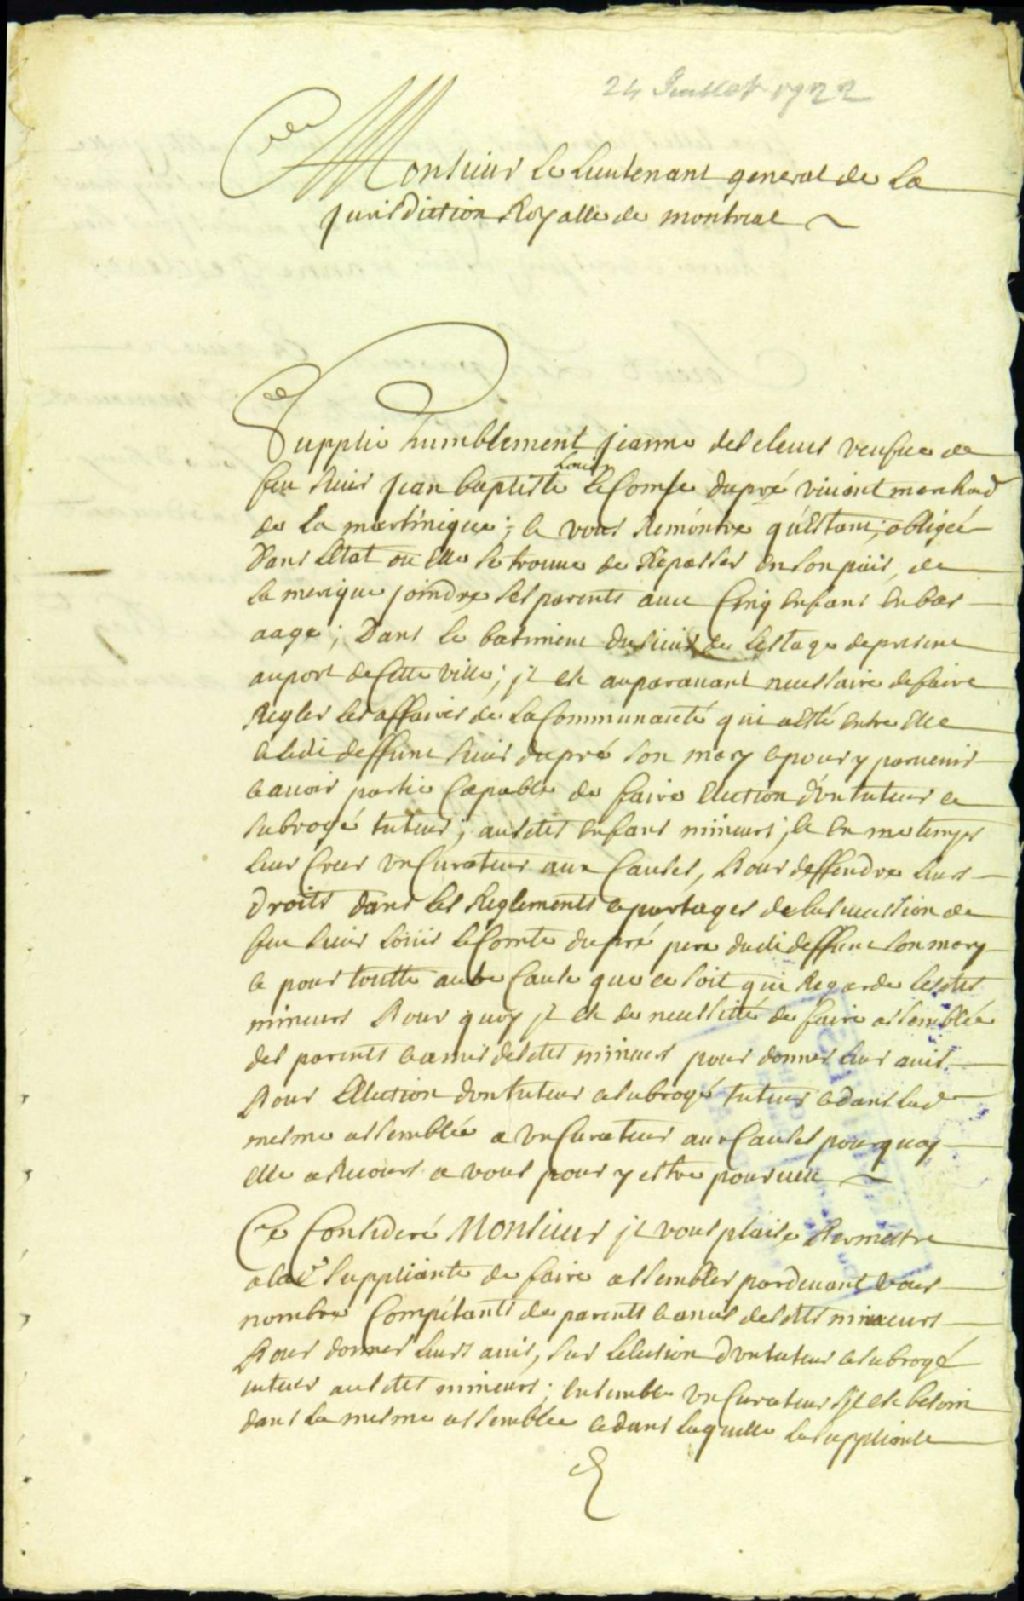 24 Juillet 1722
Monsieur Le Lieutenant general de La
Jurisdiction Royalle de montreal
Supplie humblement jeanne descleus veufue de
feu sieur jean baptiste Louis leComte dupré viuant marchand
de La martinique; & vous Remontre qu'Estant obligée
Dans L'Etat ou Elle se trouue de Repasser En son païs, de
la merique joindre ses parents auec Cinq enfans en bas
aage; Dans le batiment du sieur de Lestage de present
au port de Cette ville; jl est auparauant necessaire de faire
Regler les affaires de La Communauté qui a Esté Entre Elle
& ledit deffunt sieur dupré son mary & pour y paruenir
& auoir partie Capable de faire Election d'un tuteur et
subrogé tuteur; ausdits enfans mineurs; & En mesme temps
leur Creer un Curateur aux Causes, Pour deffendre leurs
Droits dans les Reglements & partages de la sucession de
feu sieur Loüis leComte dupré pere dudit deffunt son mary
& pour toutte autre Cause que ce soit qui Regarde lesdits
mineurs Pour quoy jl est de necessité de faire assemblée
des parents & amis desdits mineurs pour donner leur auis
Pour L'Election d'un tuteur & subrogé tuteur & dans lad
mesme assemblée a un Curateur aux Causes pourquoy
Elle a Recours a vous pour y estre pourueu
Ce Consideré Monsieur jl vous plaise Permettre
a lad suppliante de faire assembler pardeuant vous
nombre Compétants de parents & amis desdits mineurs
Pour donner leurs auis, sur L'election d'un tuteur & subrogé
tuteur ausdits mineurs; Ensemble un Curateur s'jl est besoin
dans la mesme assemblée & dans laquelle la suppliante